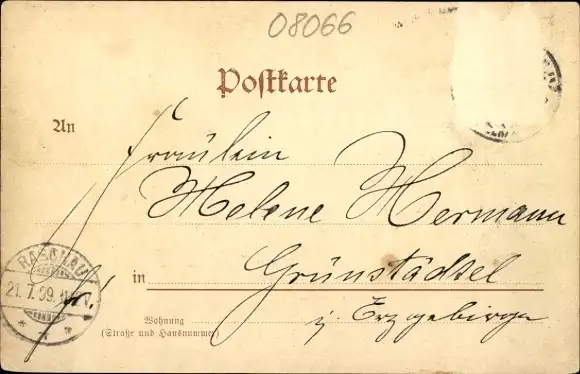 08066
Postkarte
An
Fräulein
Helene Hermann
in Grünstädtel
i/ Erzgebirge
RASCHAU
21. 7. 99.
Wohnung
(Straße und Hausnummer)